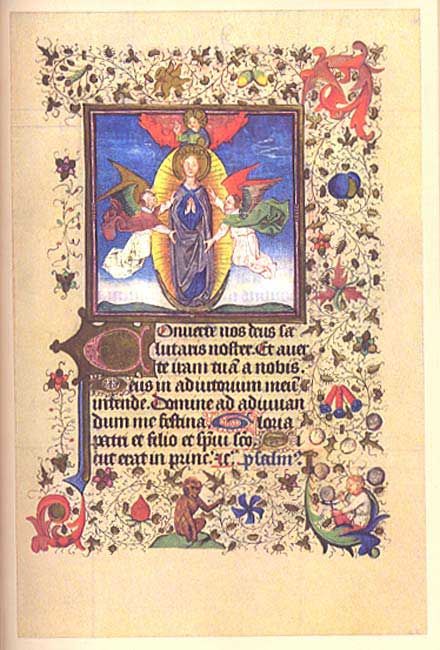 Converte nos deus sa
lutaris noster. Et aver
te iram tuā a nobis.
Deus in adiutorium meū
intende. Domine ad adiuvan
dum me festina. Gloria
patri et filio et spūi sc̄o. Si
cut erat in princ.